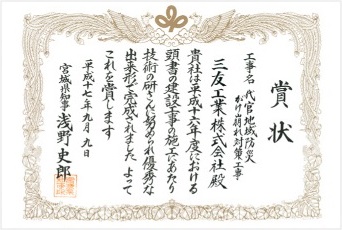 賞状
工事名 代官地域防災
がけ崩れ対策工事
三友工業株式会社殿
貴社は平成十六年度における
頭書の建設工事の施工にあたり
技術の研さんに努められ優秀な
出来形で完成されました よって
これを賞します
平成十七年九月九日
宮城県知事 浅野史郎